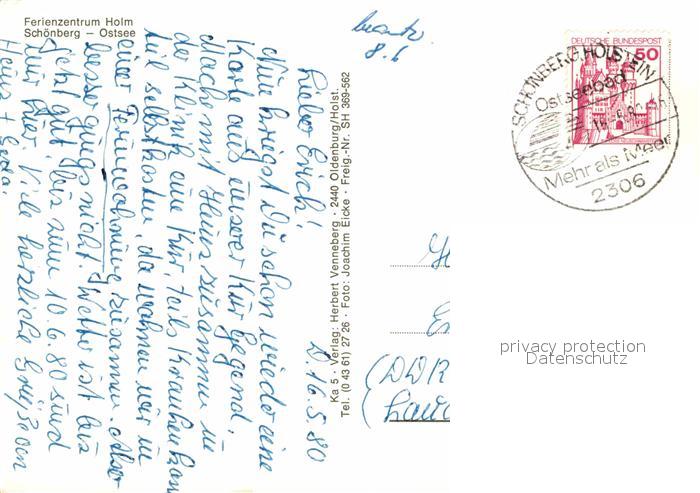 Ferienzentrum Holm
Schönberg – Ostsee
Ka 5 · Verlag: Herbert Venneberg · 2440 Oldenburg/Holst.
Tel. (0 43 61) 27 26 · Foto: Joachim Eicke · Freig.-Nr. SH 369-562
8.6
DEUTSCHE BUNDESPOST
50
SCHÖNBERG, HOLSTEIN
Ostseebad
Mehr als Meer
2306
D. 16. 5. 80
Lieber Erich!
Nun kriegst Du schon wieder eine
Karte aus unserer Kur Gegend,
mache mit Heinz zusammen in
der Klinik eine Kur, teils Krankenkan
teils selbstkosten, da wohnen wir in
einer Ferienwohnung zusammen. Aber
besser gings nicht. Wetter ist bis
jetzt gut, bis zum 10.6.80 sind
wir hier. Viele herzliche Grüße von
Heinz + Gerda
(DDR
privacy protection
Datenschutz